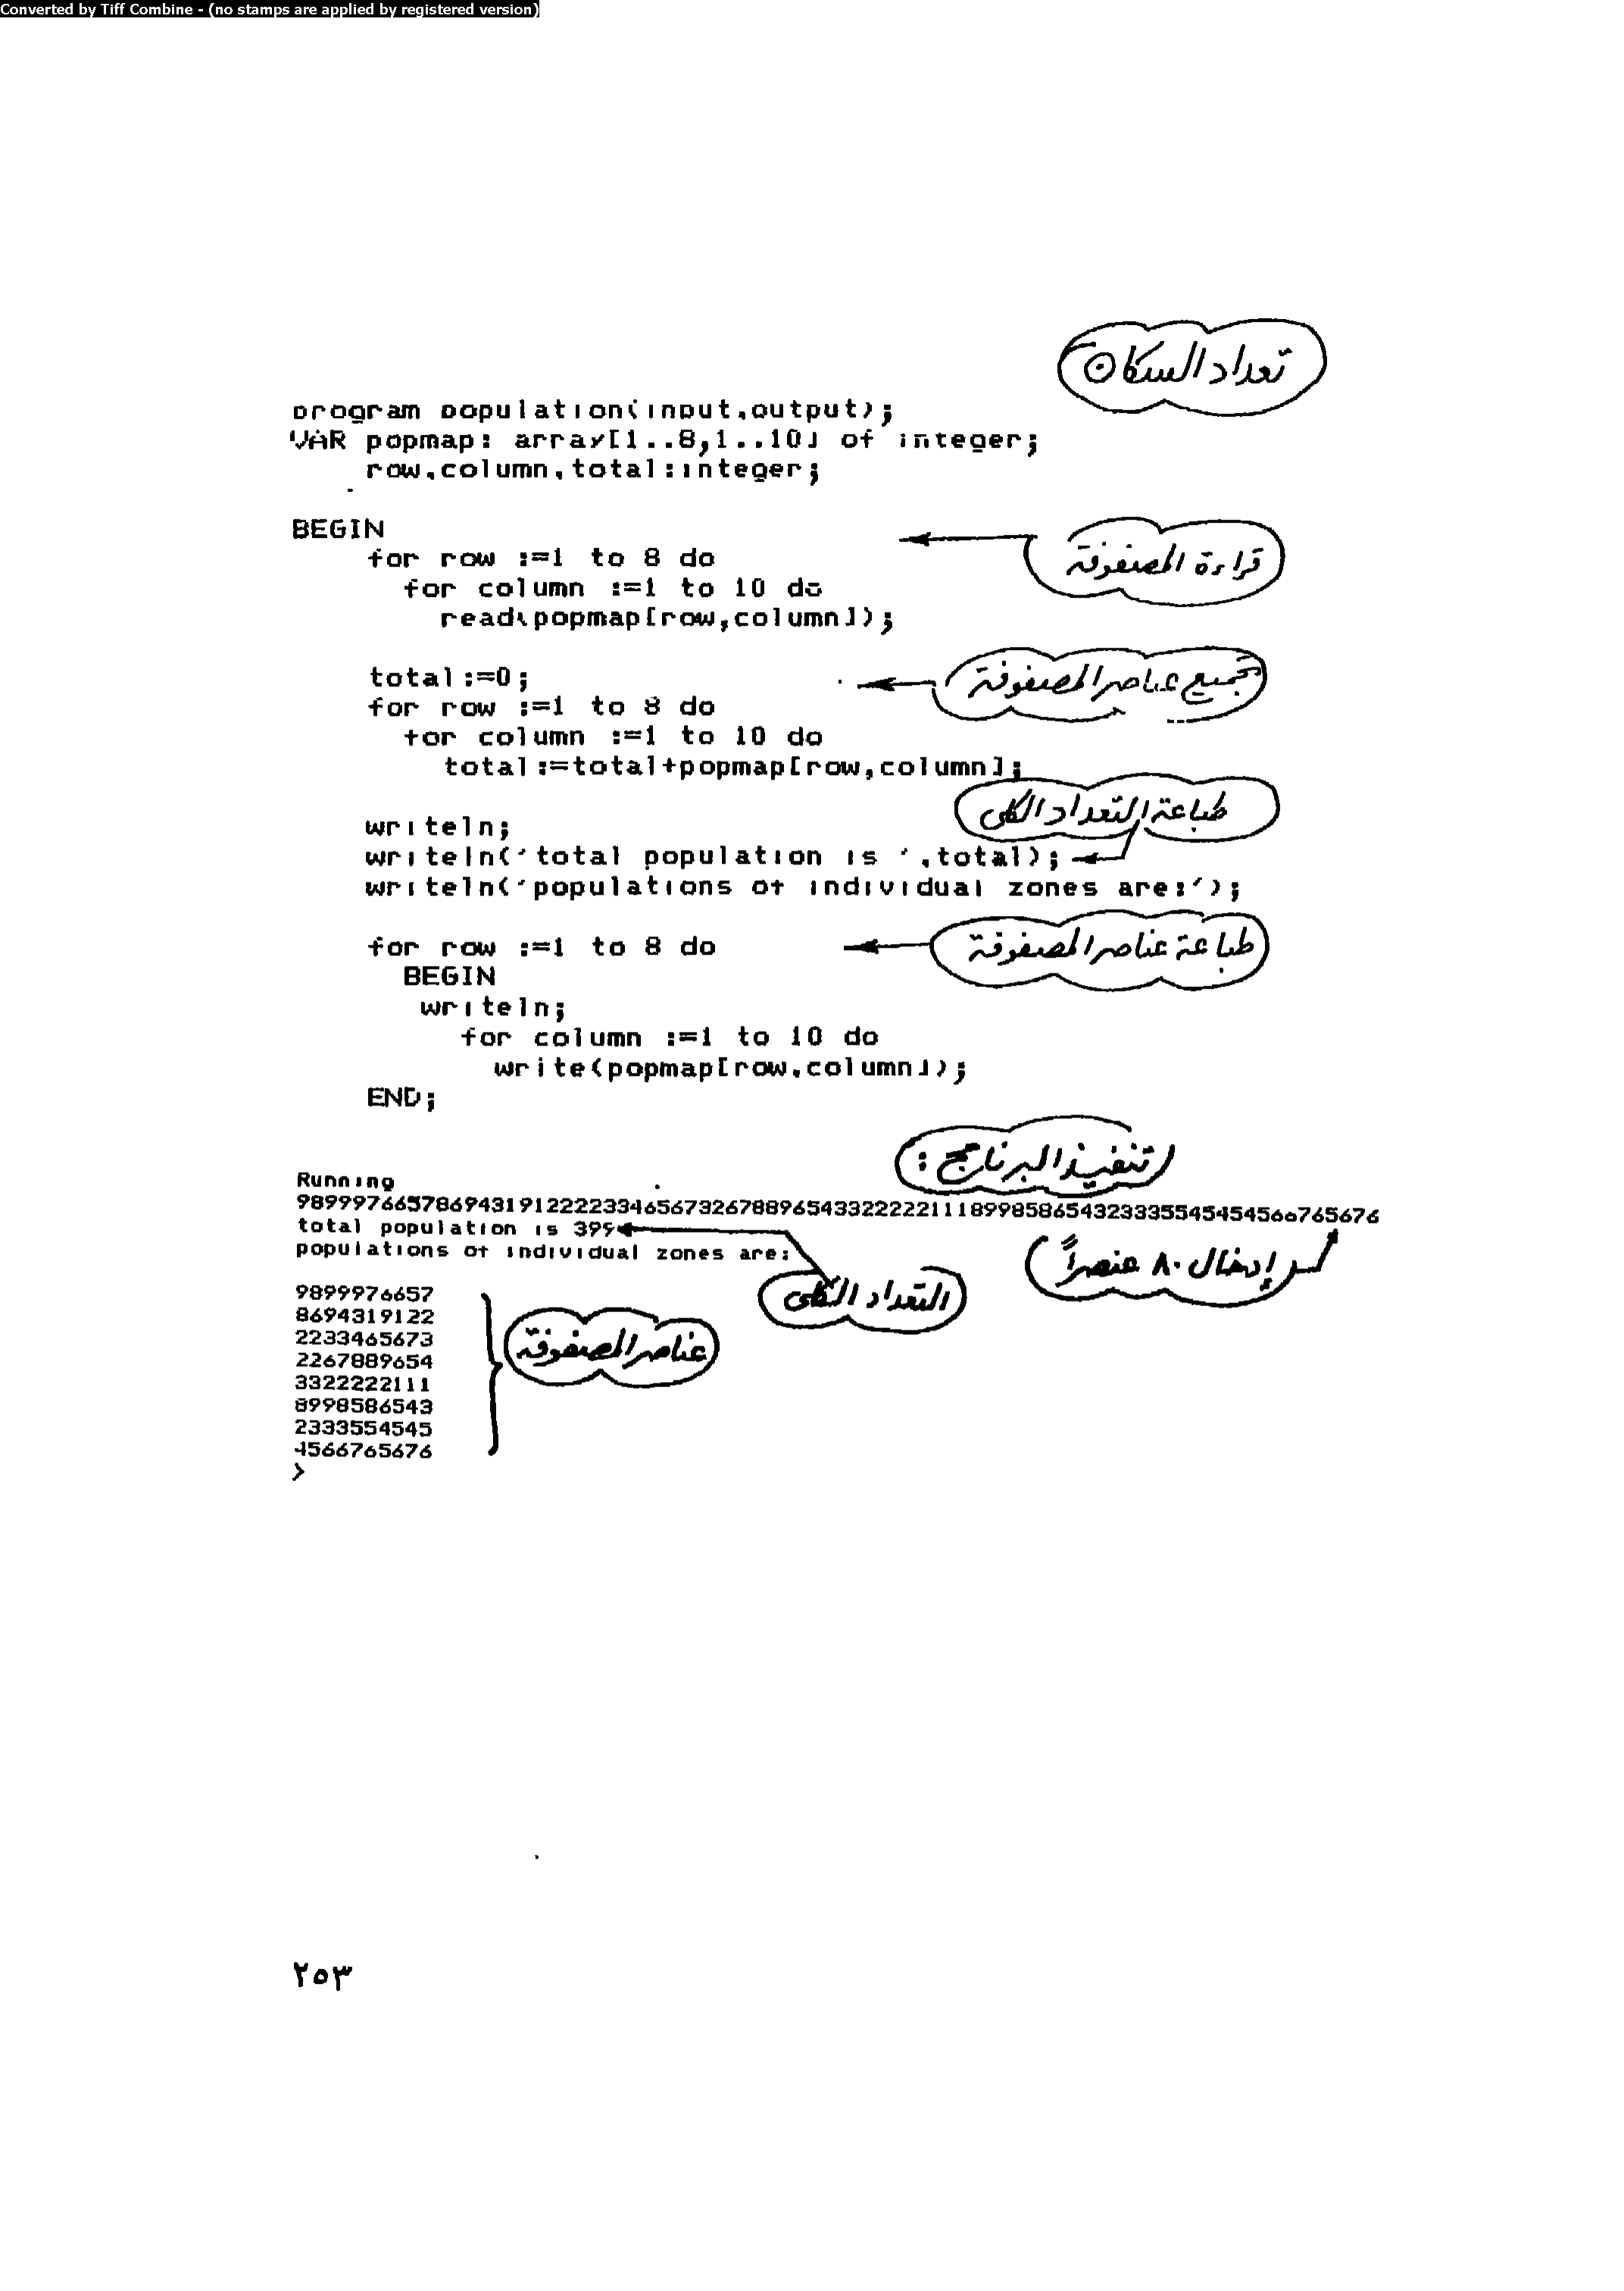 Converted by Tiff Combine - (no stamps are applied by registered version)
تعداد السكان
program population(input,output);
VAR popmap: array[1..8,1..10] of integer;
row,column,total:integer;
BEGIN
for row :=1 to 8 do
قراءة المصفوفة
for column :=1 to 10 do
read(popmap[row,column]);
total:=0;
تجميع عناصر المصفوفة
for row :=1 to 8 do
for column :=1 to 10 do
total:=total+popmap[row,column];
طباعة التعداد الكلى
writeln;
writeln('total population is ',total);
writeln('populations of individual zones are:');
for row :=1 to 8 do
طباعة عناصر المصفوفة
BEGIN
writeln;
for column :=1 to 10 do
write(popmap[row,column]);
END;
تنفيذ البرنامج :
Running
98999766578694319122223346567322678896543322222111899858654323335545454566765676
total population is 399
populations of individual zones are:
إدخال ٨٠ عنصراً
التعداد الكلى
9899976657
8694319122
2233465673
عناصر المصفوفة
2267889654
3322222111
8998586543
2333554545
4566765676
>
٢٥٣